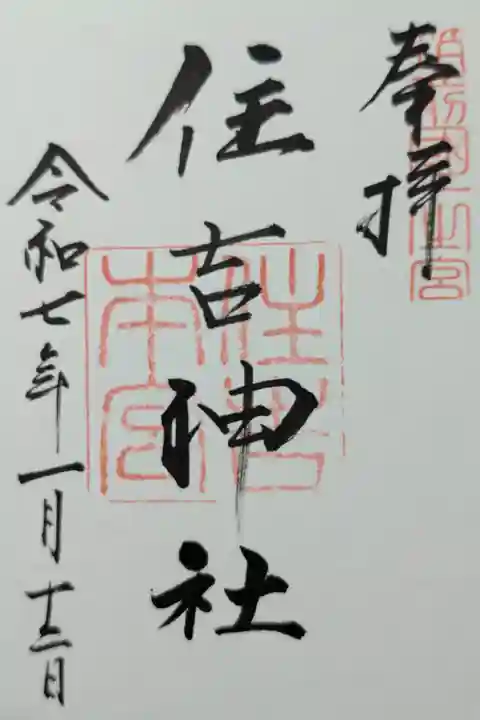 奉拝
住吉神社
住吉
本宮
令和七年一月十三日